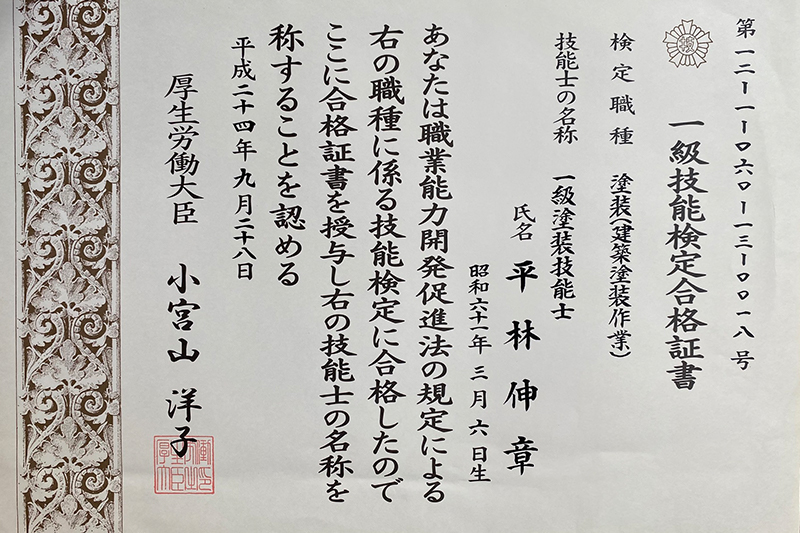 第一二ー一ー〇六〇ー一三ー〇〇一八号
一級技能検定合格証書
検定職種 塗装(建築塗装作業)
技能士の名称 一級塗装技能士
氏名 平林伸章
昭和六十一年三月六日生
あなたは職業能力開発促進法の規定による
右の職種に係る技能検定に合格したので
ここに合格証書を授与し右の技能士の名称を
称することを認める
平成二十四年九月二十八日
厚生労働大臣 小宮山洋子